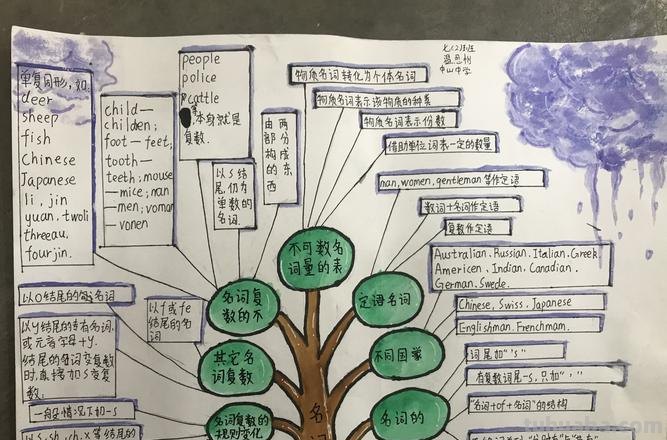 七(2)班
温恩树
中山中学
单复同形,如:
deer
sheep
fish
Chinese
Japanese
li, jin
yuan, twoli
threeau,
fourjin.
child—
children;
foot—feet;
tooth—
teeth; mouse
—mice; nan
—men; voman
—vonen
people
police
cattle
等本身就是
复数.
以s结
尾,仍为
单数的
名词.
由两
部分
构成
的东
西
物质名词转化为个体名词
物质名词表示该物质的种类
物质名词表示份数
借助单位词表一定的数量
nan, women, gentleman 等作定语
数词+名词作定语
复数作定语
Australian. Russian. Italian. Greek
Americen. Indian. Canadian.
German. Swede.
Chinese, Swiss, Japanese
Englishman. Frenchmam.
词尾加"'s"
有复数词尾-s,只加"'"
"名词+of+名词"的结构
不可数名
词量的表
名词复
数的不
定语名词
其它名
词复数
不同国家
名词复数的
规则变化
名词的
名
词
以o结尾的名词
以f或fe
结尾的名
词
以y结尾的专有名词,
或元音字母+y.
结尾的名词变复数
时,直接加s变复
数.
一般情况下加-s
以s, sh, ch, x等结尾的
tuhuaba.com